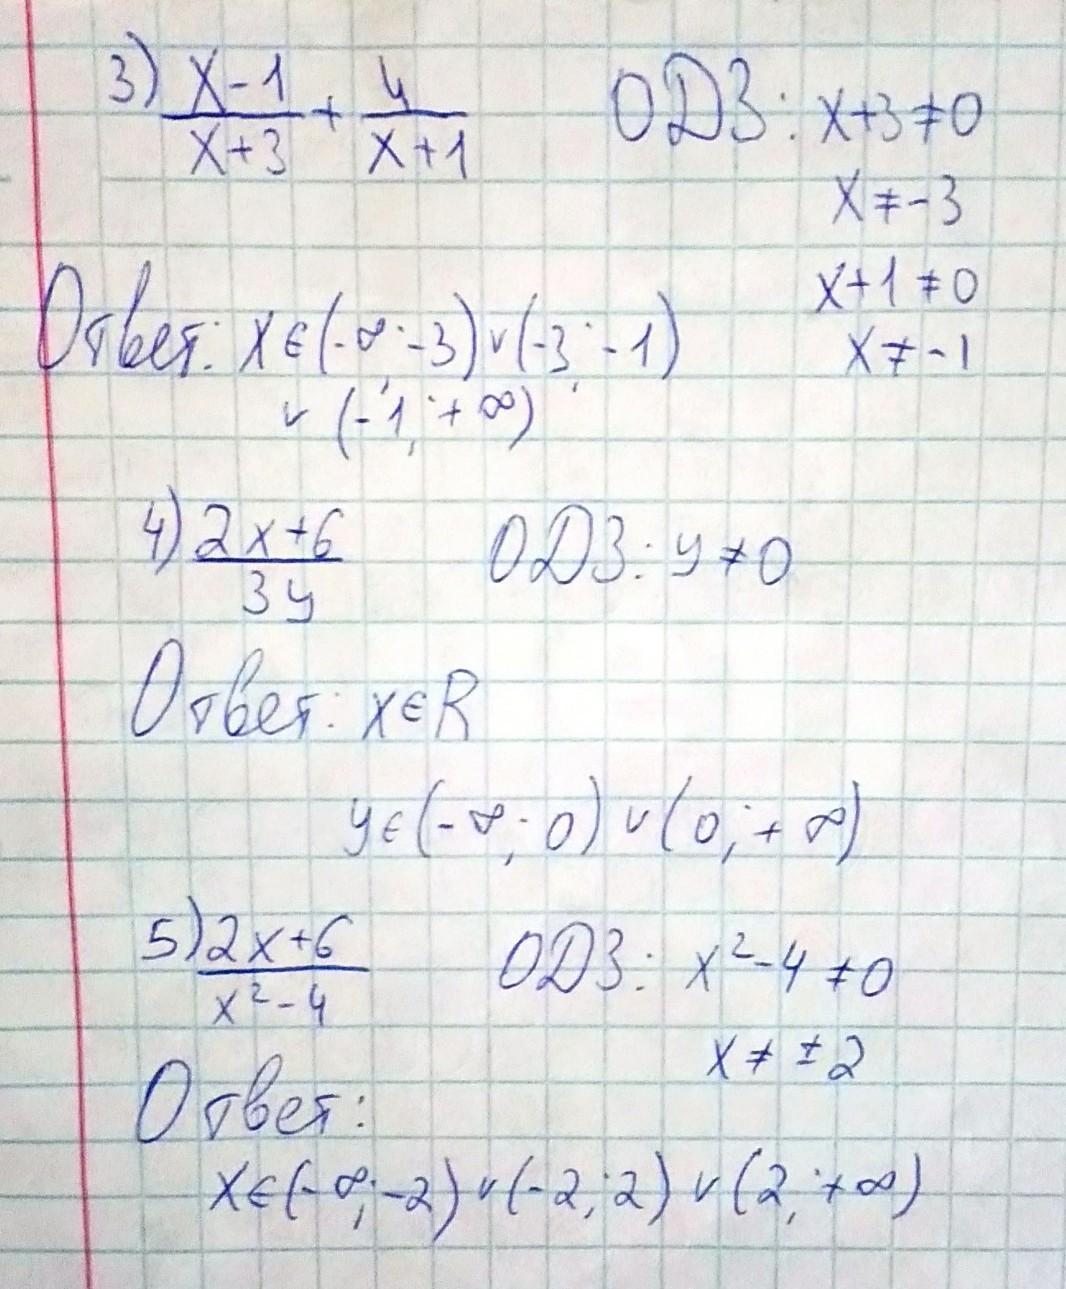 3) (x-1)/(x+3) + y/(x+1) ОДЗ: x+3≠0
x≠-3
x+1≠0
x≠-1
Ответ: x∈(-∞;-3)∨(-3;-1)
∨(-1;+∞)
4) (2x+6)/(3y) ОДЗ: y≠0
Ответ: x∈R
y∈(-∞;0)∨(0;+∞)
5) (2x+6)/(x²-4) ОДЗ: x²-4≠0
x≠±2
Ответ:
x∈(-∞;-2)∨(-2;2)∨(2;+∞)